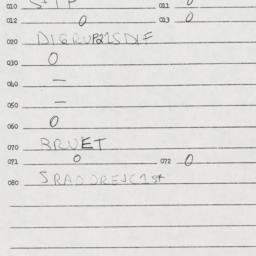 010 STIP 011 0
012 0 013 0
020
030 0
040 —
050 —
060 0
070 BRUET
071 0 072 0
080